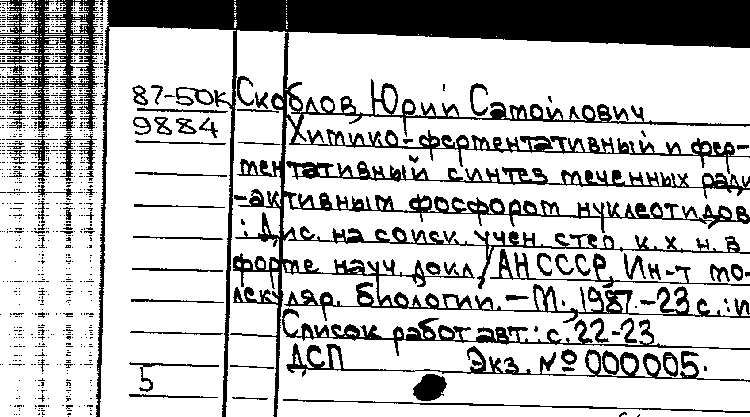 87-50К Скоблов, Юрий Самойлович
9884 Химико-ферментативный и фер-
ментативный синтез меченных ради
-активным фосфором нуклеотидов
: Дис. на соиск. учен. степ. к. х. н. в
форме науч. докл. / АН СССР, Ин-т мо-
лекуляр. биологии. - М., 1987. - 23 с. : и
Список работ авт.: с. 22-23
ДСП Экз. № 000005.
5